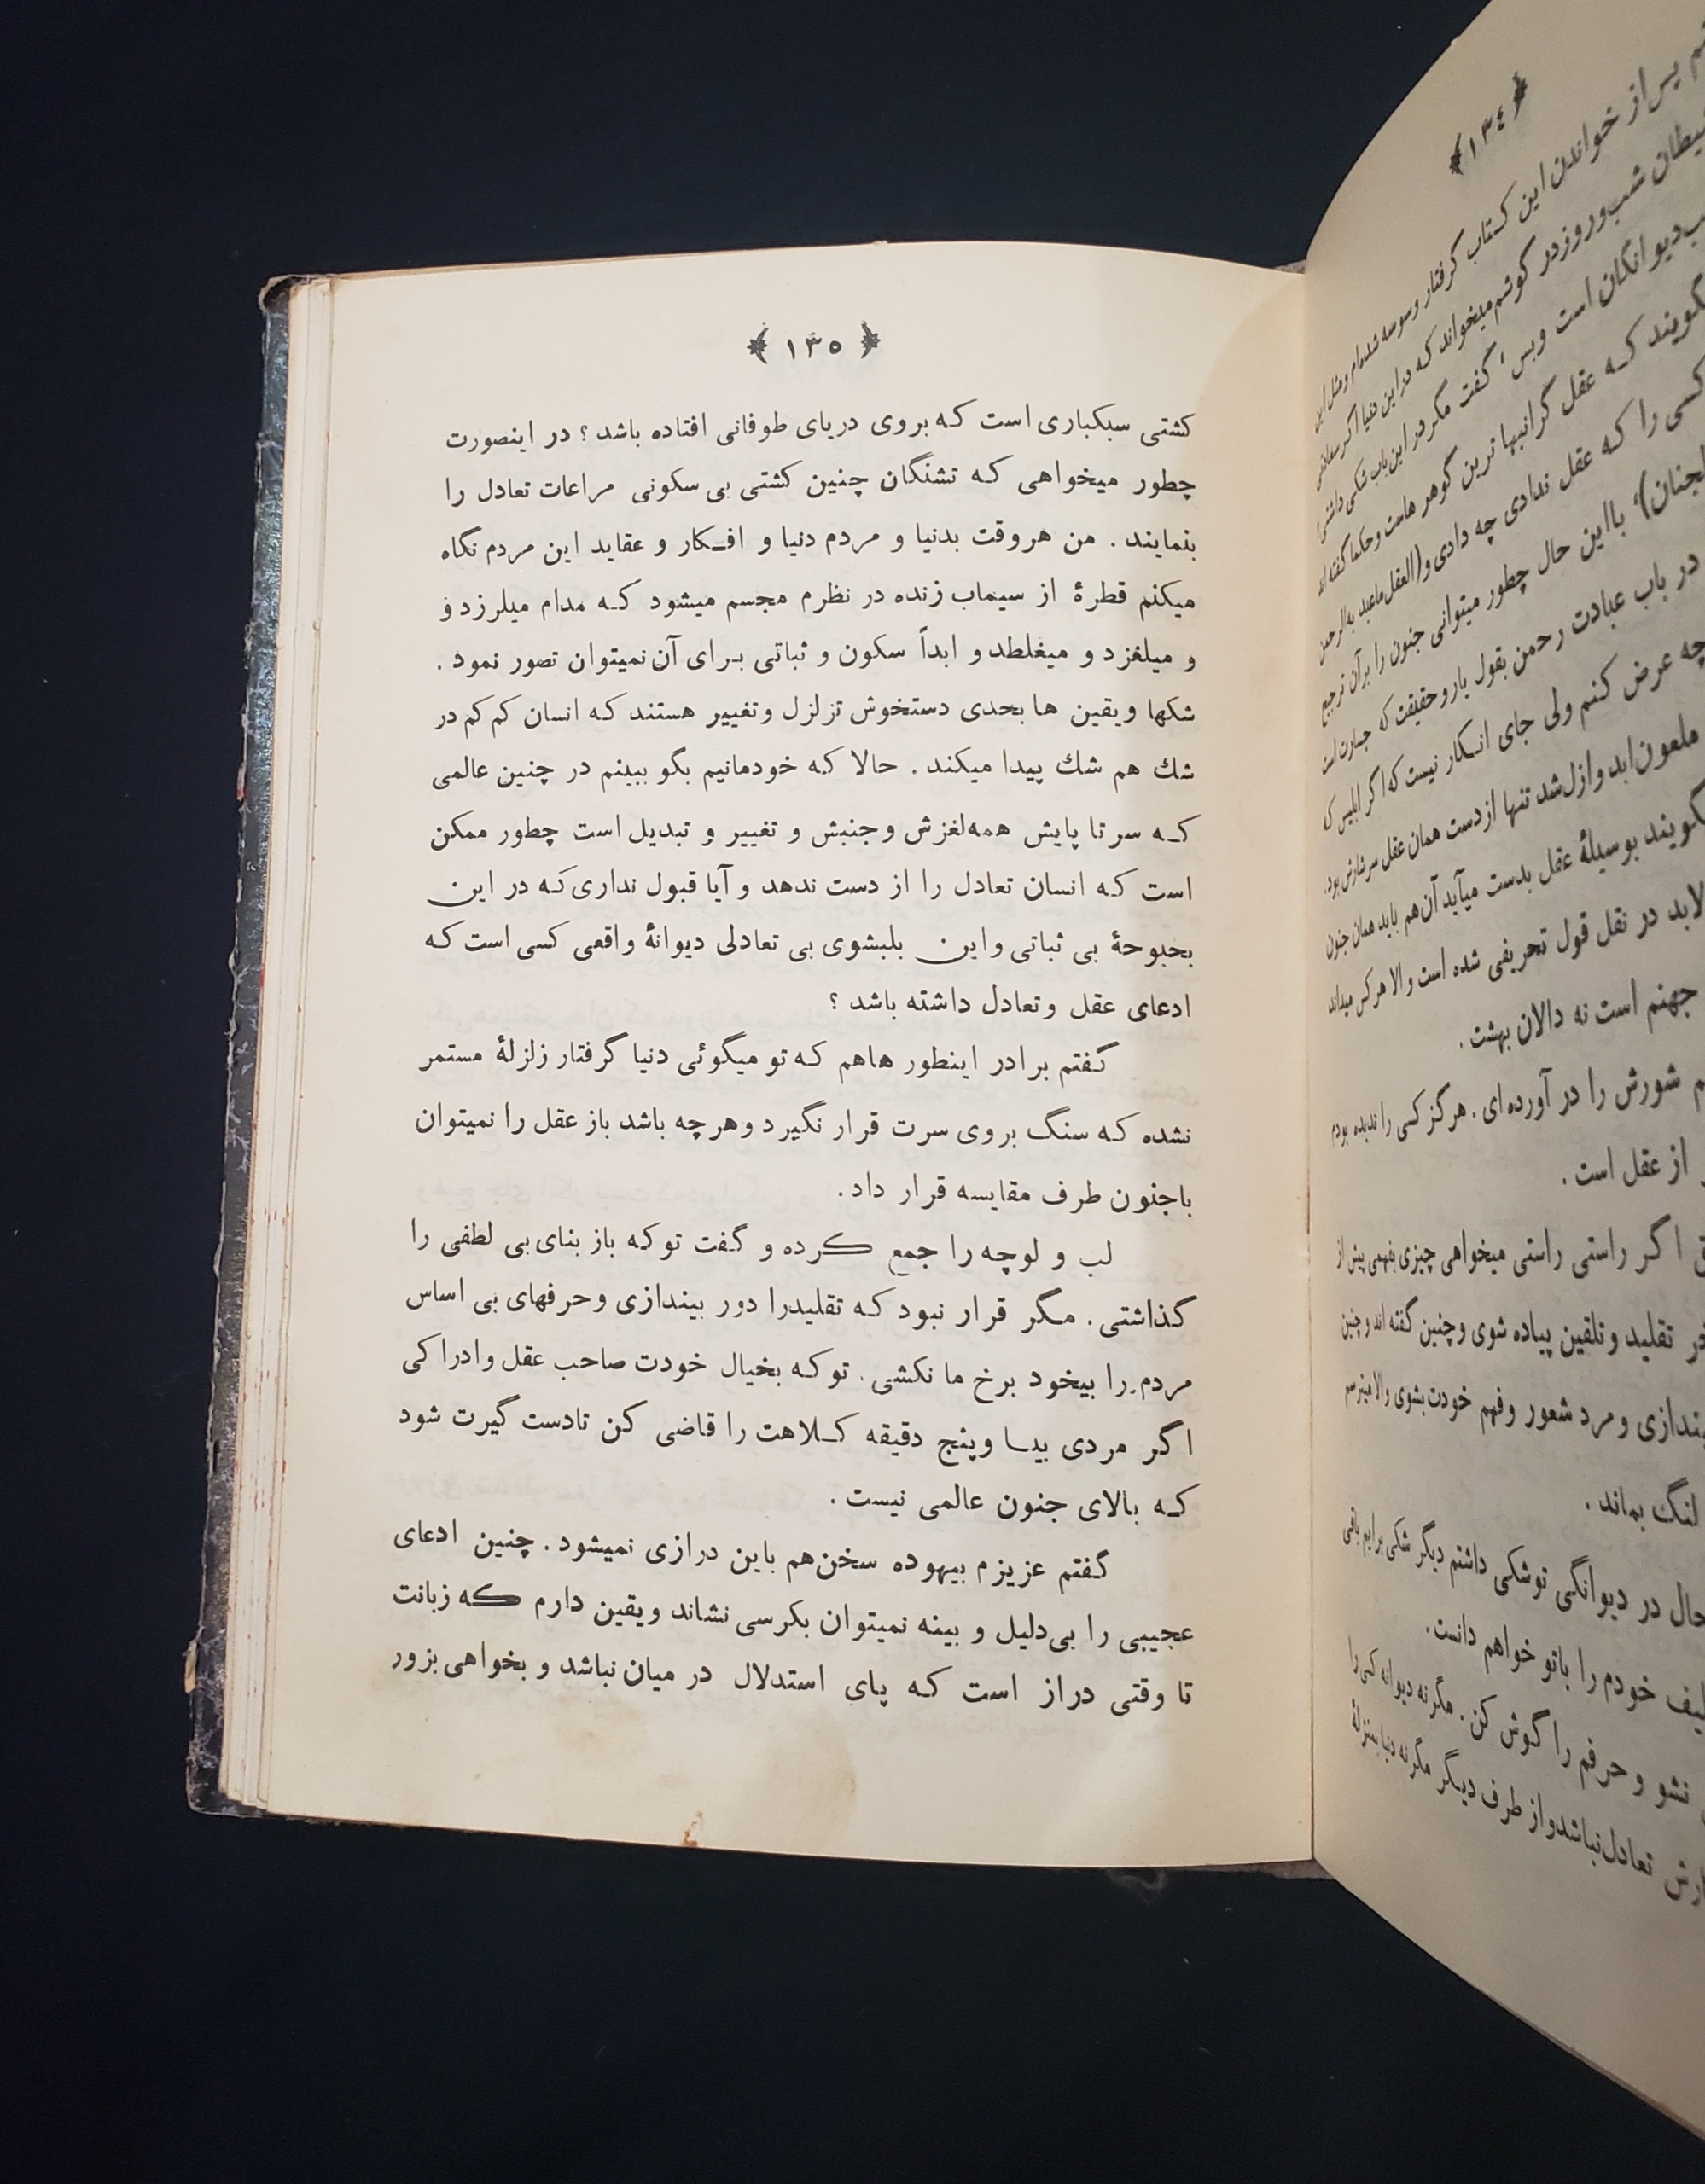 ﴿ ١٣٤ ﴾
پس از خواندن این کتاب گرفتار وسوسه شده‌ام و مثل این
شب و روز در گوشم میخواند که در این دنیا اگر سعادتی
دیوانگان است و بس، گفت مگر در این باب شکی داشتی
که عقل گرانبها ترین گوهر هاست و حکما گفته‌اند
کسی را که عقل ندادی چه دادی و (العقل ماعبد به الرحمن
با این حال چطور میتوانی جنون را بر آن ترجیح
در باب عبادت رحمن بقول یارو حقیقت که جسارت است
چه عرض کنم ولی جای انکار نیست که اگر ابلیس
ملعون ابد و ازل شد تنها از دست همان عقل سرشارش بود.
بوسیلهٔ عقل بدست میآید آن هم باید همان جنون
لابد در نقل قول تحریفی شده است و الا هر کس میداند
جهنم است نه دالان بهشت .
شورش را در آورده ای . هرگز کسی را ندیده بودم
از عقل است .
اگر راستی راستی میخواهی چیزی بفهمی پیش از
تقلید و تلقین پیاده شوی و چنین گفته اند و چنین
و مرد شعور و فهم خودت بشوی والا میترسم
لنگ بماند .
حال در دیوانگی تو شکی داشتم دیگر شکی برایم باقی
خودم را باتو خواهم دانست .
نشو و حرفم را گوش کن . مگر نه دیوانه کسی را
تعادل نباشد و از طرف دیگر مگر نه دنیا بمنزلهٔ
﴿ ١٣٥ ﴾
کشتی سبکباری است که بروی دریای طوفانی افتاده باشد ؟ در اینصورت
چطور میخواهی که تشنگان چنین کشتی بی سکونی مراعات تعادل را
بنمایند . من هروقت بدنیا و مردم دنیا و افکار و عقاید این مردم نگاه
میکنم قطرهٔ از سیماب زنده در نظرم مجسم میشود که مدام میلرزد و
و میلغزد و میغلطد و ابداً سکون و ثباتی برای آن نمیتوان تصور نمود .
شکها و یقین ها بحدی دستخوش تزلزل و تغییر هستند که انسان کم کم در
شك هم شك پیدا میکند . حالا که خودمانیم بگو ببینم در چنین عالمی
که سر تا پایش همه لغزش و جنبش و تغییر و تبدیل است چطور ممکن
است که انسان تعادل را از دست ندهد و آیا قبول نداری که در این
بحبوحهٔ بی ثباتی و این بلبشوی بی تعادلی دیوانهٔ واقعی کسی است که
ادعای عقل و تعادل داشته باشد ؟
گفتم برادر اینطور هاهم که تو میگوئی دنیا گرفتار زلزلهٔ مستمر
نشده که سنگ بروی سرت قرار نگیرد و هرچه باشد باز عقل را نمیتوان
باجنون طرف مقایسه قرار داد .
لب و لوچه را جمع کرده و گفت توکه باز بنای بی لطفی را
گذاشتی . مگر قرار نبود که تقلیدرا دور بیندازی و حرفهای بی اساس
مردم را بیخود برخ ما نکشی . توکه بخیال خودت صاحب عقل و ادراکی
اگر مردی بیا و پنج دقیقه کلاهت را قاضی کن تادست گیرت شود
که بالای جنون عالمی نیست .
گفتم عزیزم بیهوده سخن هم باین درازی نمیشود . چنین ادعای
عجیبی را بی دلیل و بینه نمیتوان بکرسی نشاند و یقین دارم که زبانت
تا وقتی دراز است که پای استدلال در میان نباشد و بخواهی بزور